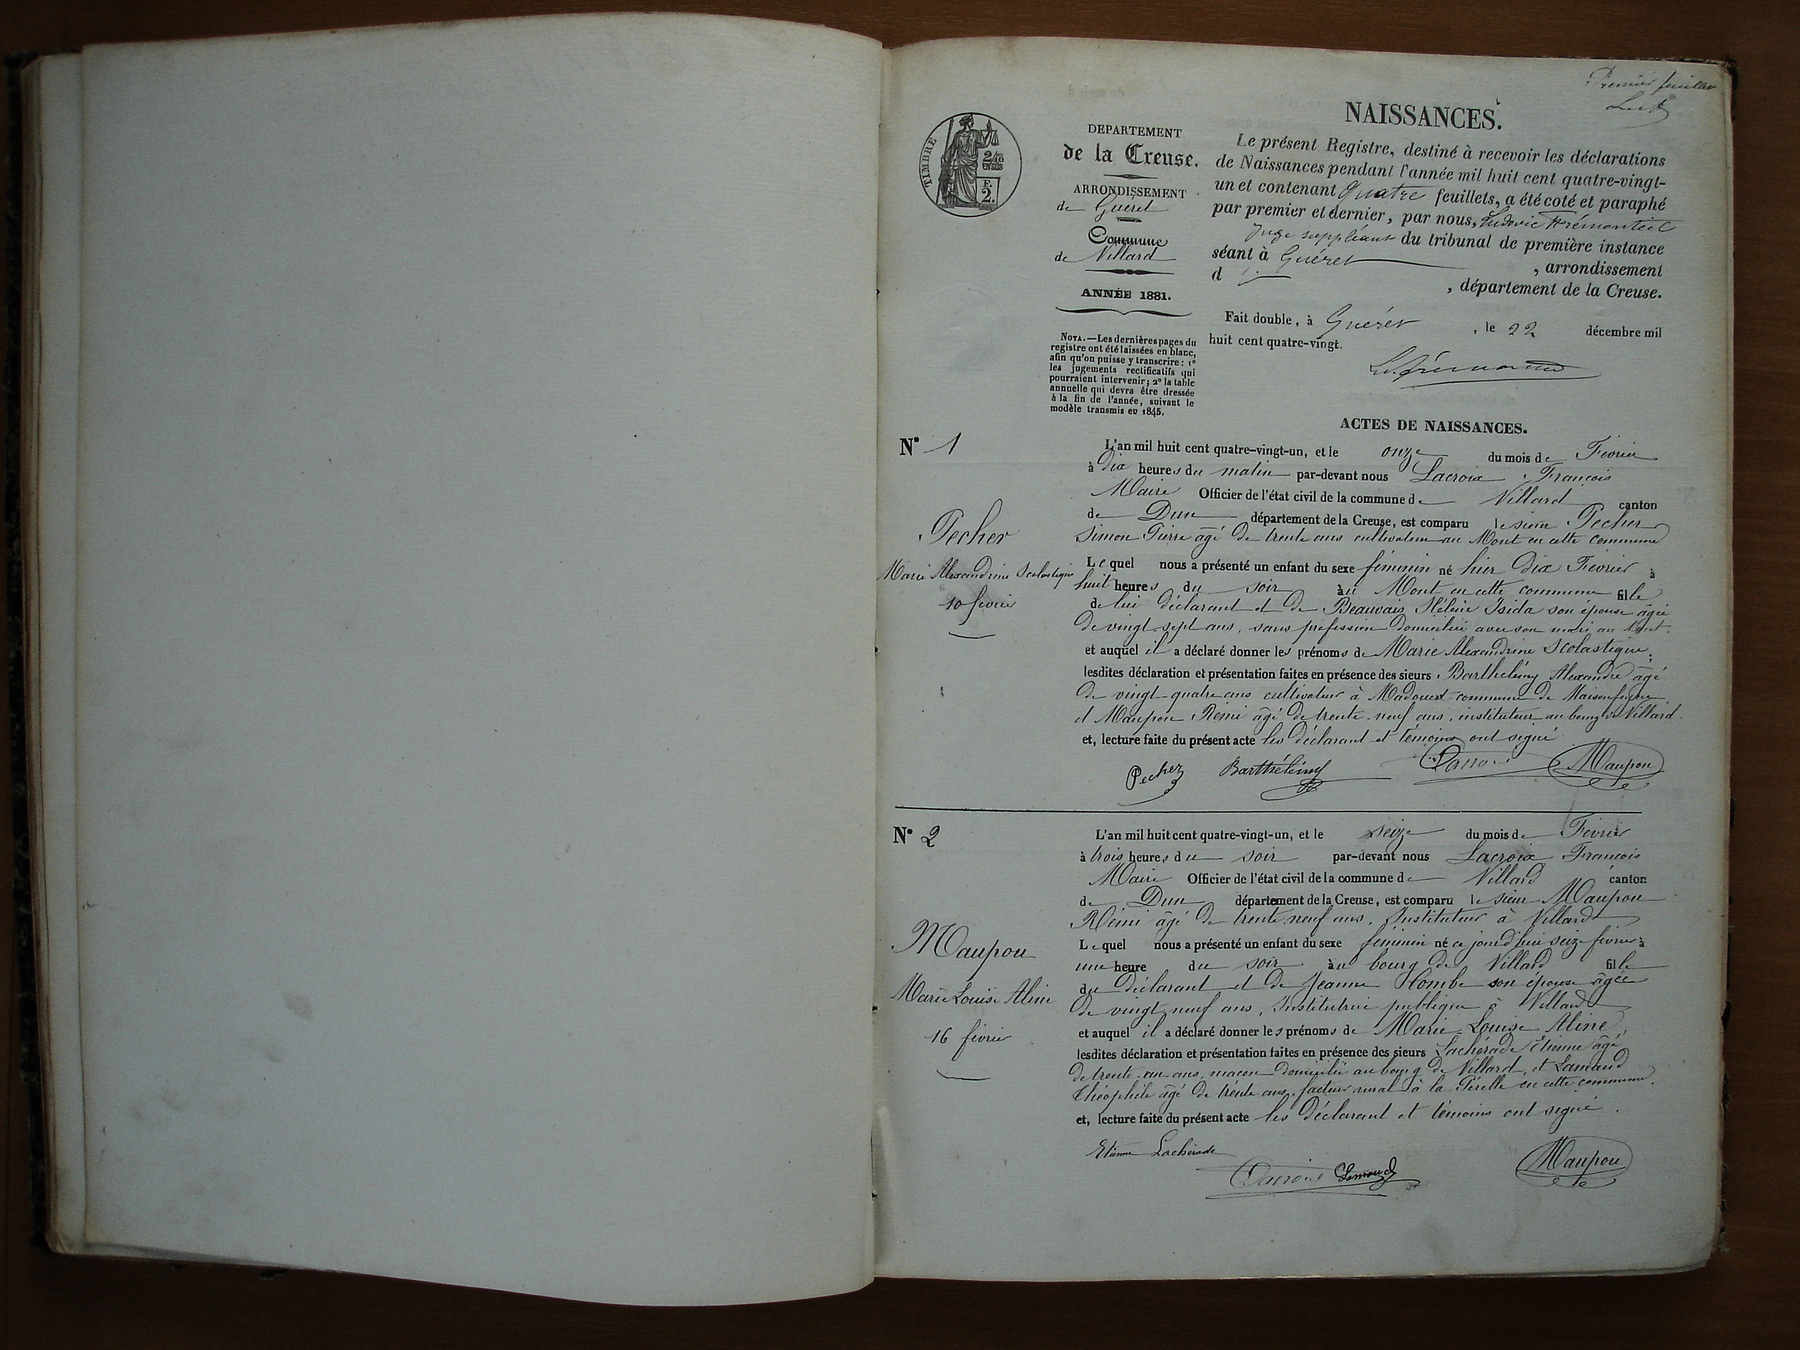 Premier feuillet
NAISSANCES.
TIMBRE
2/10
EN SUS
F.
2.
DEPARTEMENT
de la Creuse.
ARRONDISSEMENT
de Guéret
Commune
de Villard
ANNÉE 1881.
NOTA.—Les dernières pages du
registre ont été laissées en blanc,
afin qu'on puisse y transcrire : 1°
les jugements rectificatifs qui
pourraient intervenir; 2° la table
annuelle qui devra être dressée
à la fin de l'année, suivant le
modèle transmis en 1845.
Le présent Registre, destiné à recevoir les déclarations
de Naissances pendant l'année mil huit cent quatre-vingt-
un et contenant Quatre feuillets, a été coté et paraphé
par premier et dernier, par nous, Ludovic Frémonteil
Juge suppléant du tribunal de première instance
séant à Guéret , arrondissement
d , département de la Creuse.
Fait double, à Guéret , le 22 décembre mil
huit cent quatre-vingt.
ACTES DE NAISSANCES.
N° 1
Pecher
Marie Alexandrine Scolastique
10 février
L'an mil huit cent quatre-vingt-un, et le onze du mois de Février
à dix heures du matin par-devant nous Lacroix François
Maire Officier de l'état civil de la commune de Villard canton
de Dun département de la Creuse, est comparu le sieur Pecher
Simon Pierre âgé de trente ans cultivateur au Mont en cette commune
Lequel nous a présenté un enfant du sexe féminin né hier dix Février à
huit heures du soir au Mont en cette commune fille
de lui déclarant et de Beauvais Hélène Isida son épouse âgée
de vingt-sept ans, sans profession domiciliée avec son mari au Mont.
et auquel il a déclaré donner les prénoms de Marie Alexandrine Scolastique;
lesdites déclaration et présentation faites en présence des sieurs Barthélémy Alexandre âgé
de vingt-quatre ans cultivateur à Madouest commune de Maisonfeyne
et Maupou Rémi âgé de trente-neuf ans, instituteur au bourg de Villard.
et, lecture faite du présent acte les déclarant et témoins ont signé
Pecher Barthélémy Lacroix Maupou
N° 2
Maupou
Marie Louise Aline
16 février
L'an mil huit cent quatre-vingt-un, et le seize du mois de Février
à trois heures du soir par-devant nous Lacroix François
Maire Officier de l'état civil de la commune de Villard canton
de Dun département de la Creuse, est comparu le sieur Maupou
Rémi âgé de trente neuf ans, Instituteur à Villard
Lequel nous a présenté un enfant du sexe féminin né ce jourd'hui seize février à
une heure du soir au bourg de Villard fille
du déclarant et de Jeanne Plombe son épouse âgée
de vingt neuf ans, Institutrice publique à Villard
et auquel il a déclaré donner les prénoms de Marie-Louise Aline,
lesdites déclaration et présentation faites en présence des sieurs Lachérade Étienne âgé
de trente-un ans, maçon domicilié au bourg de Villard, et Lamaud
Théophile âgé de trente ans, facteur rural à la Pérelle en cette commune.
et, lecture faite du présent acte les déclarant et témoins ont signé.
Etienne Lachérade
Lacroix Lamaud Maupou